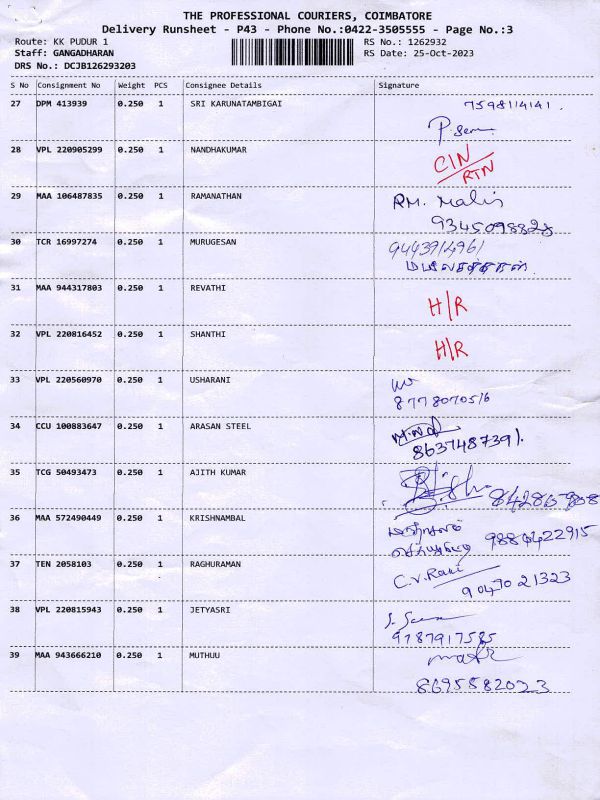 THE PROFESSIONAL COURIERS, COIMBATORE
Delivery Runsheet - P43 - Phone No.:0422-3505555 - Page No.:3
Route: KK PUDUR 1 RS No.: 1262932
Staff: GANGADHARAN RS Date: 25-Oct-2023
DRS No.: DCJB126293203
S No Consignment No Weight PCS Consignee Details Signature
27 DPM 413939 0.250 1 SRI KARUNATAMBIGAI 7598114141.
28 VPL 220905299 0.250 1 NANDHAKUMAR CIN
RTN
29 MAA 106487835 0.250 1 RAMANATHAN
9345098828
30 TCR 16997274 0.250 1 MURUGESAN 9443914961
31 MAA 944317803 0.250 1 REVATHI H/R
32 VPL 220816452 0.250 1 SHANTHI H/R
33 VPL 220560970 0.250 1 USHARANI
8778070516
34 CCU 100883647 0.250 1 ARASAN STEEL
8637487391.
35 TCG 50493473 0.250 1 AJITH KUMAR
36 MAA 572490449 0.250 1 KRISHNAMBAL
9884422915
37 TEN 2058103 0.250 1 RAGHURAMAN C.V. Ravi
9047021323
38 VPL 220815943 0.250 1 JETYASRI
9787917585
39 MAA 943666210 0.250 1 MUTHUU
8695582023